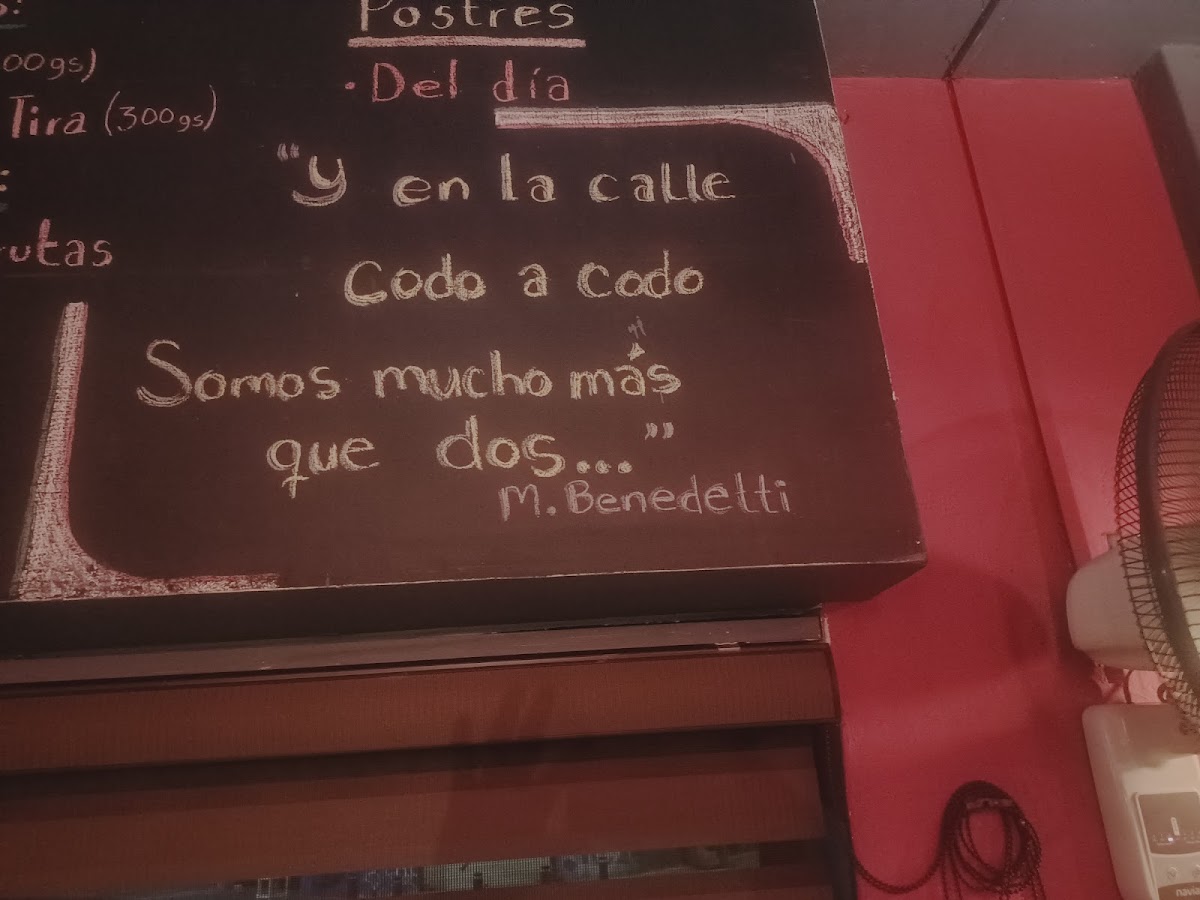 Postres
• Del día
00gs)
Tira (300gs)
:
rutas
"Y en la calle
Codo a codo
Somos mucho más
que dos..."
M. Benedetti